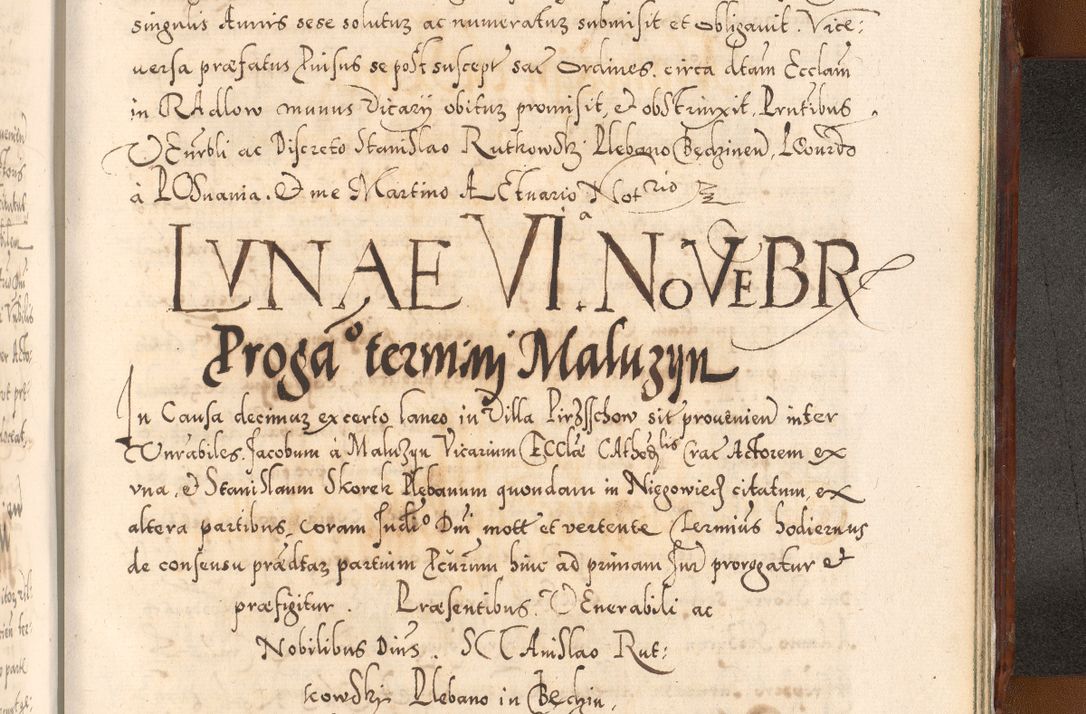 singulis Annis sese solutuȝ ac numeratuȝ submisit et obligauit. Vice:
uersa præfatus Puisus se post suscept sac ordines. circa dtam Ecclam
in RAdlow munus Vicarij obituȝ promisit, et obstrinxit. Pntibus
VEnrbli ac Discreto Stanislao Rutkowski Plebano Bęchinen, LEonrdo
à POsnania. Et me Martino ACtuario Notrio
LVNAE VIa. NoVEBR
Progao termini Maluzyn
In Causa decimaȝ ex certo laneo in Villa Pirzsschow sit prouenien inter
Vnrabiles. Jacobum à Maluzyn Vicarium ECClæ CAthedlis Crac Actorem ex
vna, et Stanislaum Skorek Plebanum quondam in Niegowied citatum, ex
altera partibus, coram Judio Dni mott et vertente Terminus hodiernus
de consensu prædtaȝ partium Pcurum hinc ad primam Jur prorogatur et
præfigitur. Præsentibus VEnerabili ac
Nobilibus Dnis. SCTAnislao Rut:
kowski Plebano in Bęchin,